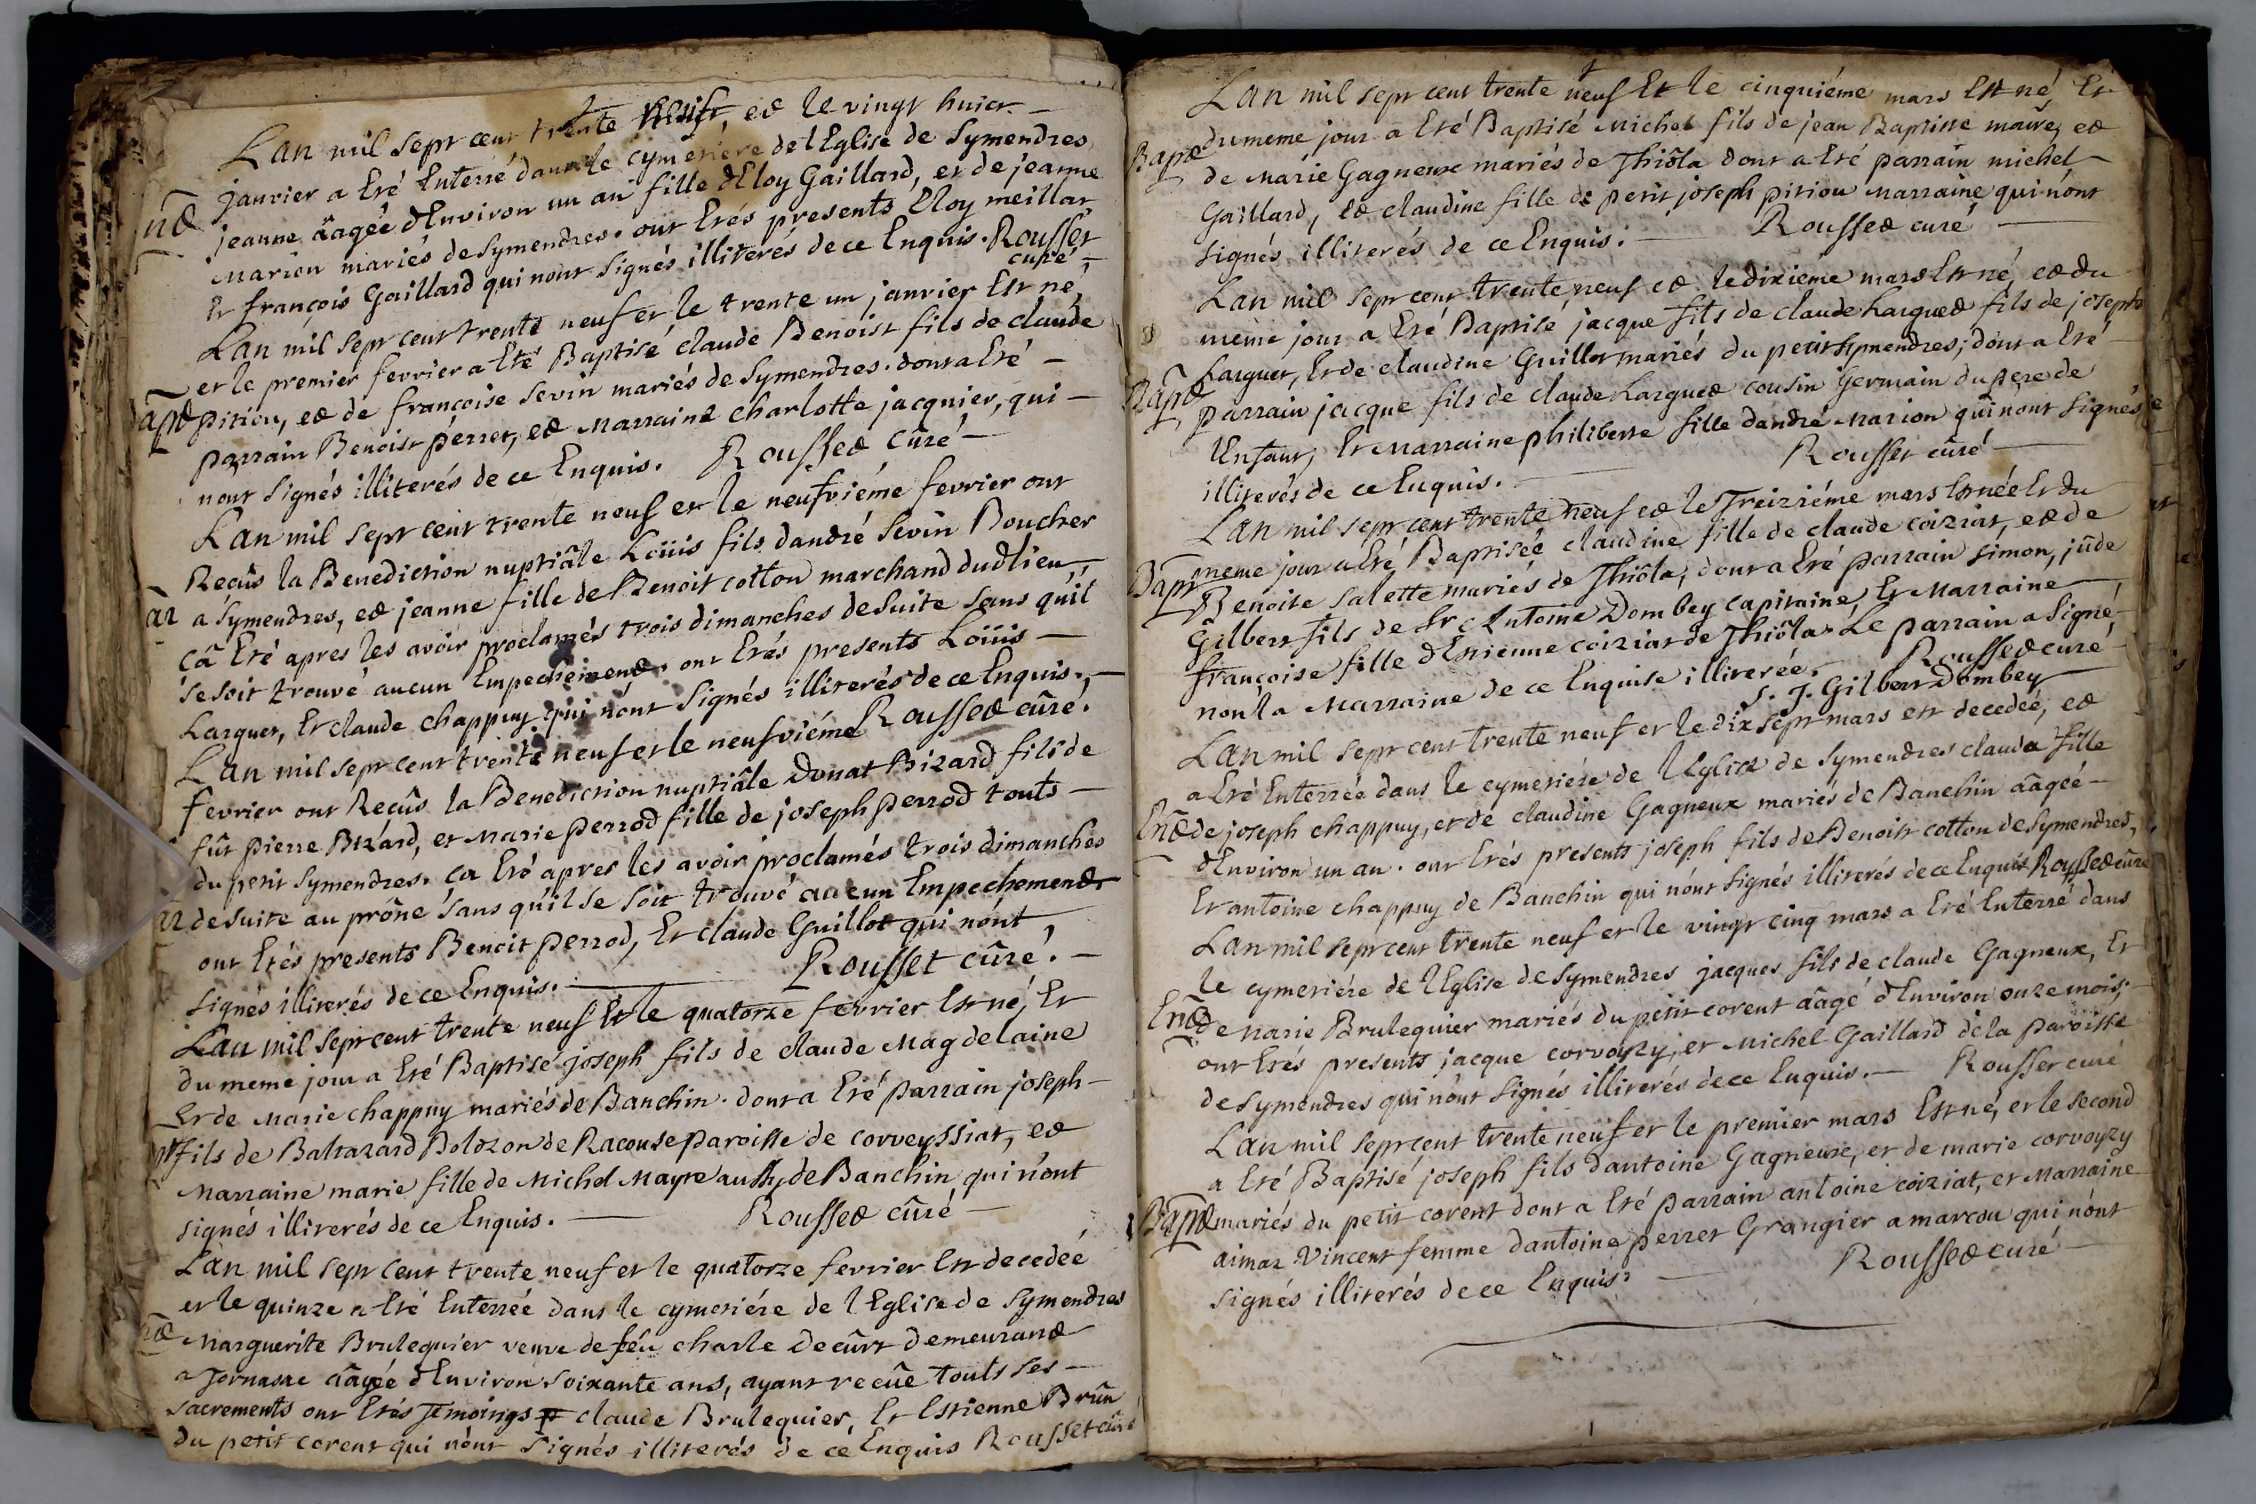 Lan mil sept cent trente neuf, et le vingt huict
janvier a Eté Enterré dans le cymetiére de lEglise de Symendres
jeanne âagée dEnviron un an fille dEloy Gaillard, et de jeanne
Marion mariés de Symendres. ont Etés presents Eloy meillat
Et françois Gaillard qui nont signés illiterés de ce Enquis. Rousset
curé
Lan mil sept cent trente neuf et le trente un janvier Est né,
et le premier fevrier a Eté Baptisé claude Benoist fils de claude
Bapt pitiou, et de françoise Sevin mariés de Symendres. dont a Eté
parrain Benoist perret, et Marraine charlotte jacquier, qui
nont signés illiterés de ce Enquis. Rousset cûré
Lan mil sept cent trente neuf et le neufviéme fevrier ont
Reçûs la Benediction nuptiâle Loüis fils dandré Sevin Boucher
a Symendres, et jeanne fille de Benoit cotton marchand dudt lieu,
çâ Eté apres les avoir proclamés trois dimanches de suite sans qu'il
se soit trouvé aucun Empechement. ont Etés presents Loüis
Larguet, Et claude chappuy qui nónt signés illiterés de ce Enquis.
Rousset cûré.
Lan mil sept cent trente neuf et le neufviéme
fevrier ont Reçûs la Benediction nuptiâle Donat Bizard fils de
fût pierre Bizard, et Marie perrod fille de joseph perrod touts
du petit Symendres. ça Eté apres les avoir proclamés trois dimanches
de suite au prône sans qu'il se soit trouvé aucun Empechement
ont Etés presents Benoit perrod, Et claude Guillot qui nónt
signés illiterés de ce Enquis. Rousset cûré.
Lan mil sept cent trente neuf Et le quatorze fevrier Est né, Et
du meme jour a Eté Baptisé joseph fils de claude Magdelaine
Et de Marie chappuy mariés de Banchin. dont a Eté parrain joseph
fils de Baltazard Bolozon de Racouse paroisse de corveyssiat, et
Marraine marie fille de Michel Mayre aussy de Banchin qui n'ont
signés illiterés de ce Enquis. Rousset cûré
Lan mil sept cent trente neuf et le quatorze fevrier Est decedée
et le quinze a Eté Enterrée dans le cymetiére de l'Eglise de Symendres
Marguerite Brulequier veuve de feu charle Decûrt demeurant
a Tornasac âagée dEnviron soixante ans, ayant reçûe touts ses
sacrements ont Etés Temoings claude Brulequier, Et Estienne Brûn
du petit corent qui nónt signés illiterés de ce Enquis Rousset cûré
Lan mil sept cent trente neuf Et le cinquiéme mars Est né Et
Bapt du meme jour a Eté Baptisé Michel fils de jean Baptiste maire, et
de Marie Gagneux mariés de Thiôla dont a Eté parrain michel
Gaillard, et claudine fille de petit joseph pitiou Marraine qui nónt
signés illiterés de ce Enquis. Rousset curé
Lan mil sept cent trente neuf et le dixieme mars Est né et du
meme jour a Eté Baptisé jacque fils de claude Larguet fils de joseph
Larguet, Et de claudine Guillot mariés du petit Symendres; dont a Eté
Bapt parrain jacque fils de claude Larguet cousin Germain du pere de
l'Enfant; Et Marraine philiberte fille dandré Marion qui nont signés
illiterés de ce Enquis. Rousset cûré
Lan mil sept cent trente neuf et le Treiziéme mars Est née Et du
Bapt meme jour a Eté Baptisée claudine fille de claude coiziat, et de
Benoite Salette mariés de Thiôla; dont a Eté parrain simon, jûde
Gilbert fils de Sr Antoine Dombey capitaine, Et Marraine
françoise fille dEstienne coiziat de Thiôla. Le parrain a signé
non la Marraine de ce Enquise illiterée. Rousset curé
S. J. Gilbert Dombey
Lan mil sept cent trente neuf et le dix sept mars est decedée, et
a Eté Enterrée dans le cymetiére de lEglise de Symendres clauda fille
Ent de joseph chappuy, et de claudine Gagneux mariés de Banchin âagée
dEnviron un an. ont Etés presents joseph fils de Benoitt cotton de Symendres,
Et antoine chappuy de Banchin qui nónt signés illiterés de ce Enquis Rousset cûré
Lan mil sept cent trente neuf et le vingt cinq mars a Eté Enterré dans
le cymetiére de lEglise de Symendres jacques fils de claude Gagneux, Et
Ent de Marie Brulequier mariés du petit corent âagé dEnviron onze mois;
ont Etés presents jacque corvoyzy, et Michel Gaillard de la paroisse
de Symendres qui nónt signés illiterés de ce Enquis. Rousset curé
Lan mil sept cent trente neuf et le premier mars Est né, et le second
a Eté Baptisé joseph fils dantoine Gagneux, et de marie corvoyzy
Bapt mariés du petit corent dont a Eté parrain antoine coiziat, et Marraine
aimaz Vincent femme dantoine perret Grangier a marcou qui nónt
signés illiterés de ce Enquis. Rousset curé